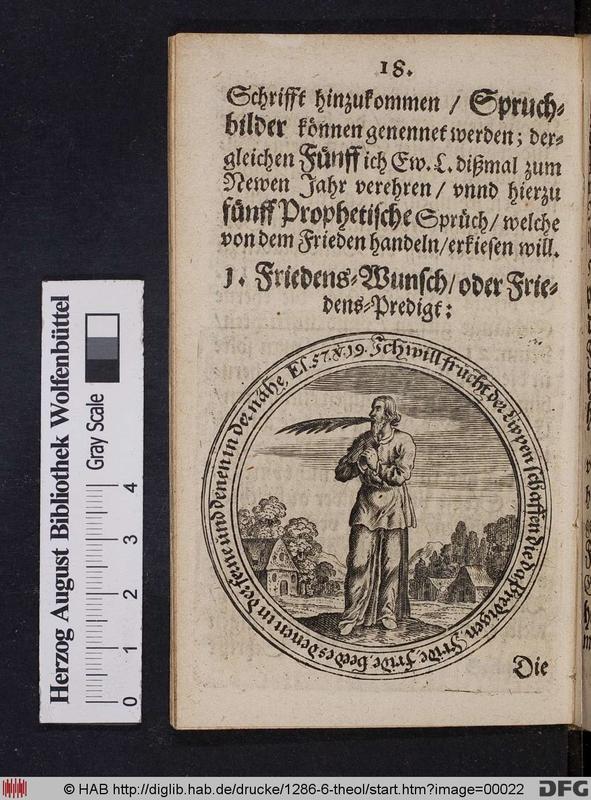 18.
Schrifft hinzukommen / Spruch-
bilder können genennet werden; der-
gleichen Fünff ich Ew. L. dißmal zum
Newen Jahr verehren / vnnd hierzu
fünff Prophetische Sprüch / welche
von dem Frieden handeln / erkiesen will.
1. Friedens-Wunsch / oder Frie-
dens-Predigt:
Es. 57. v. 19. Ich will frücht der Lippen schaffen die da Predigen Fride, fride, beedes denen in der ferne und denen in der nähe,
Die
Herzog August Bibliothek Wolfenbüttel
Gray Scale
0 1 2 3 4
© HAB http://diglib.hab.de/drucke/1286-6-theol/start.htm?image=00022
DFG